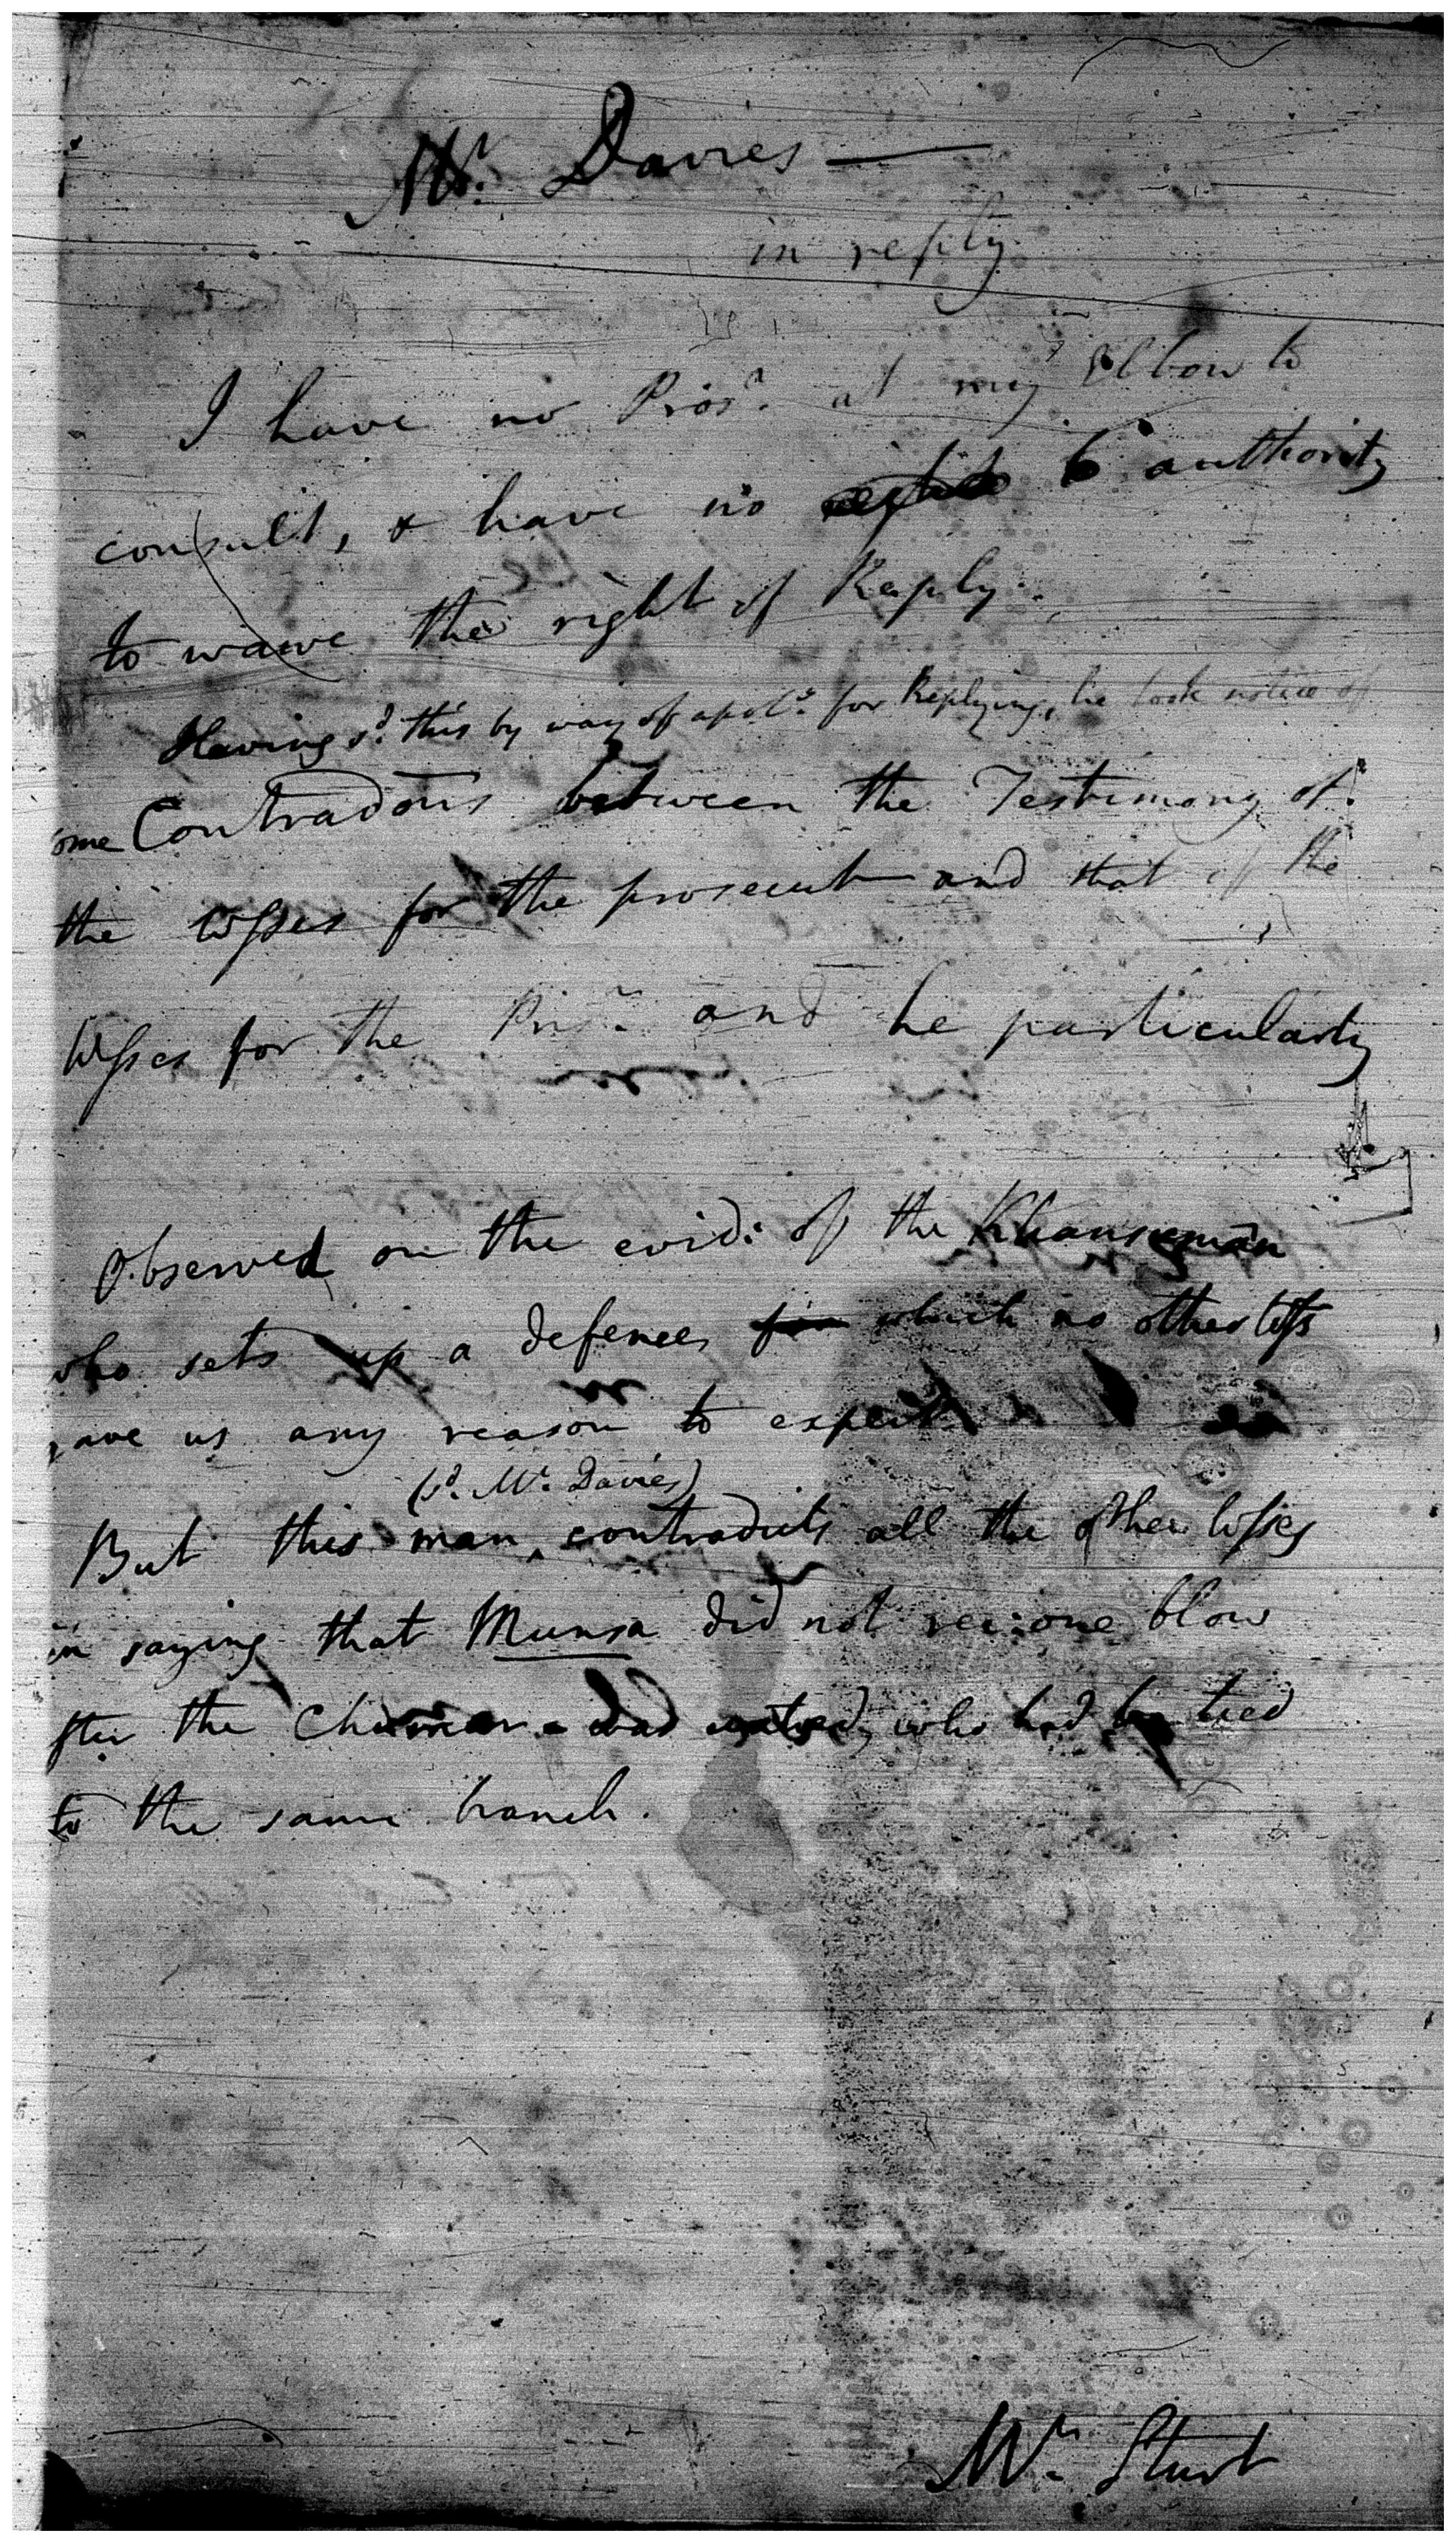 Mr. Davies —
in reply
I have no Prosr. at my Elbow to
consult, & have no authority
to waive the right of Reply.
Having sd. this by way of apoly. for Replying, he took notice of
ome Contradons between the Testimony of
the Wsses for the prosecut and that of the
Wsses for the Prisr. and he particularly
Observed on the evid: of the Khansuman
who sets up a defence, which no other Wss
gave us any reason to expect
(sd. Mr. Davies)
But this man contradicts all the other Wsses
in saying that Munsa did not rec: one blow
fter the was who had been tied
to the same branch.
Mr. Sturt